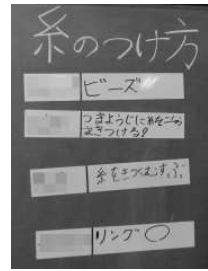 糸のつけ方
ビーズ
つまようじに糸を二回
まきつける?
糸をきつくむすぶ
リング〇